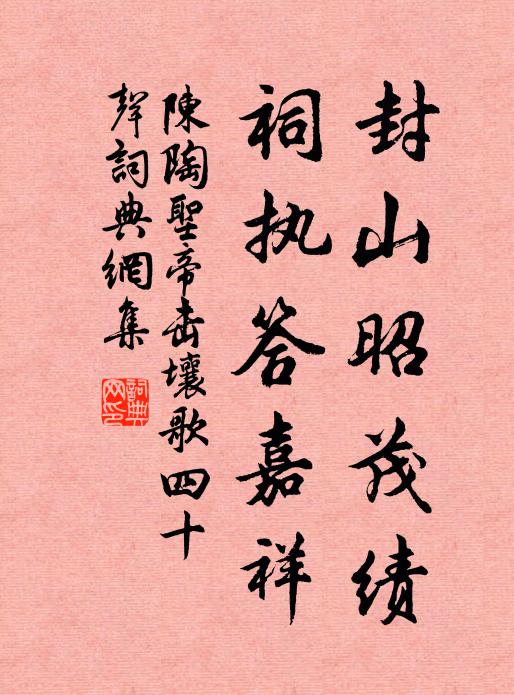 封山昭茂绩
祠执答嘉祥
陳陶聖帝击壤歌四十
聲詞典網集
詞典
网印